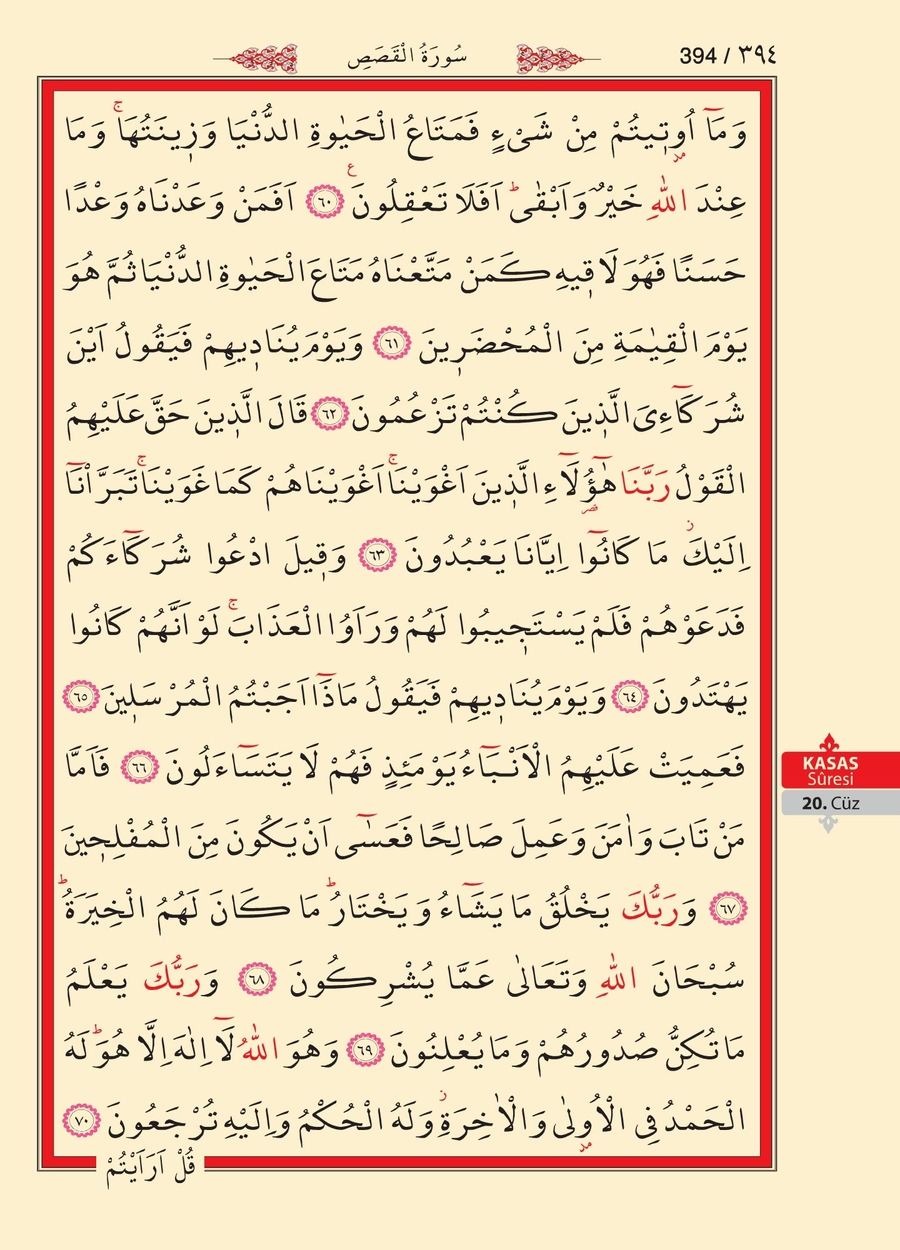 394 / ٣٩٤
سُورَةُ الْقَصَصِ
وَمَٓا اُو۫ت۪يتُمْ مِنْ شَيْءٍ فَمَتَاعُ الْحَيٰوةِ الدُّنْيَا وَز۪ينَتُهَاۚ وَمَا
عِنْدَ اللّٰهِ خَيْرٌ وَاَبْقٰىۜ اَفَلَا تَعْقِلُونَ ﴿٦٠﴾ اَفَمَنْ وَعَدْنَاهُ وَعْدًا
حَسَنًا فَهُوَ لَاق۪يهِ كَمَنْ مَتَّعْنَاهُ مَتَاعَ الْحَيٰوةِ الدُّنْيَا ثُمَّ هُوَ
يَوْمَ الْقِيٰمَةِ مِنَ الْمُحْضَر۪ينَ ﴿٦١﴾ وَيَوْمَ يُنَاد۪يهِمْ فَيَقُولُ اَيْنَ
شُرَكَٓاءِيَ الَّذ۪ينَ كُنْتُمْ تَزْعُمُونَ ﴿٦٢﴾ قَالَ الَّذ۪ينَ حَقَّ عَلَيْهِمُ
الْقَوْلُ رَبَّنَا هٰٓؤُ۬لَٓاءِ الَّذ۪ينَ اَغْوَيْنَاۚ اَغْوَيْنَاهُمْ كَمَا غَوَيْنَاۚ تَبَرَّأْنَٓا
اِلَيْكَۘ مَا كَانُٓوا اِيَّانَا يَعْبُدُونَ ﴿٦٣﴾ وَق۪يلَ ادْعُوا شُرَكَٓاءَكُمْ
فَدَعَوْهُمْ فَلَمْ يَسْتَج۪يبُوا لَهُمْ وَرَاَوُا الْعَذَابَۚ لَوْ اَنَّهُمْ كَانُوا
يَهْتَدُونَ ﴿٦٤﴾ وَيَوْمَ يُنَاد۪يهِمْ فَيَقُولُ مَاذَٓا اَجَبْتُمُ الْمُرْسَل۪ينَ ﴿٦٥﴾
فَعَمِيَتْ عَلَيْهِمُ الْاَنْبَٓاءُ يَوْمَئِذٍ فَهُمْ لَا يَتَسَٓاءَلُونَ ﴿٦٦﴾ فَاَمَّا
مَنْ تَابَ وَاٰمَنَ وَعَمِلَ صَالِحًا فَعَسٰٓى اَنْ يَكُونَ مِنَ الْمُفْلِح۪ينَ
﴿٦٧﴾ وَرَبُّكَ يَخْلُقُ مَا يَشَٓاءُ وَيَخْتَارُۜ مَا كَانَ لَهُمُ الْخِيَرَةُۜ
سُبْحَانَ اللّٰهِ وَتَعَالٰى عَمَّا يُشْرِكُونَ ﴿٦٨﴾ وَرَبُّكَ يَعْلَمُ
مَا تُكِنُّ صُدُورُهُمْ وَمَا يُعْلِنُونَ ﴿٦٩﴾ وَهُوَ اللّٰهُ لَٓا اِلٰهَ اِلَّا هُوَۜ لَهُ
الْحَمْدُ فِي الْاُو۫لٰى وَالْاٰخِرَةِۘ وَلَهُ الْحُكْمُ وَاِلَيْهِ تُرْجَعُونَ ﴿٧٠﴾
قُلْ اَرَاَيْتُمْ
KASAS
Sûresi
20. Cüz